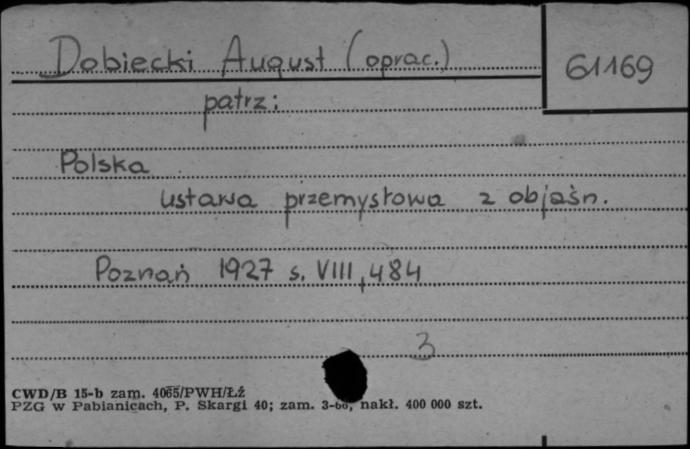 Dobiecki August (oprac.)
61169
patrz:
Polska
ustawa przemysłowa z objaśn.
Poznań 1927 s. VIII, 484
3
CWD/B 15-b zam. 4065/PWH/Łź
PZG w Pabianicach, P. Skargi 40; zam. nakł. 400 000 szt.